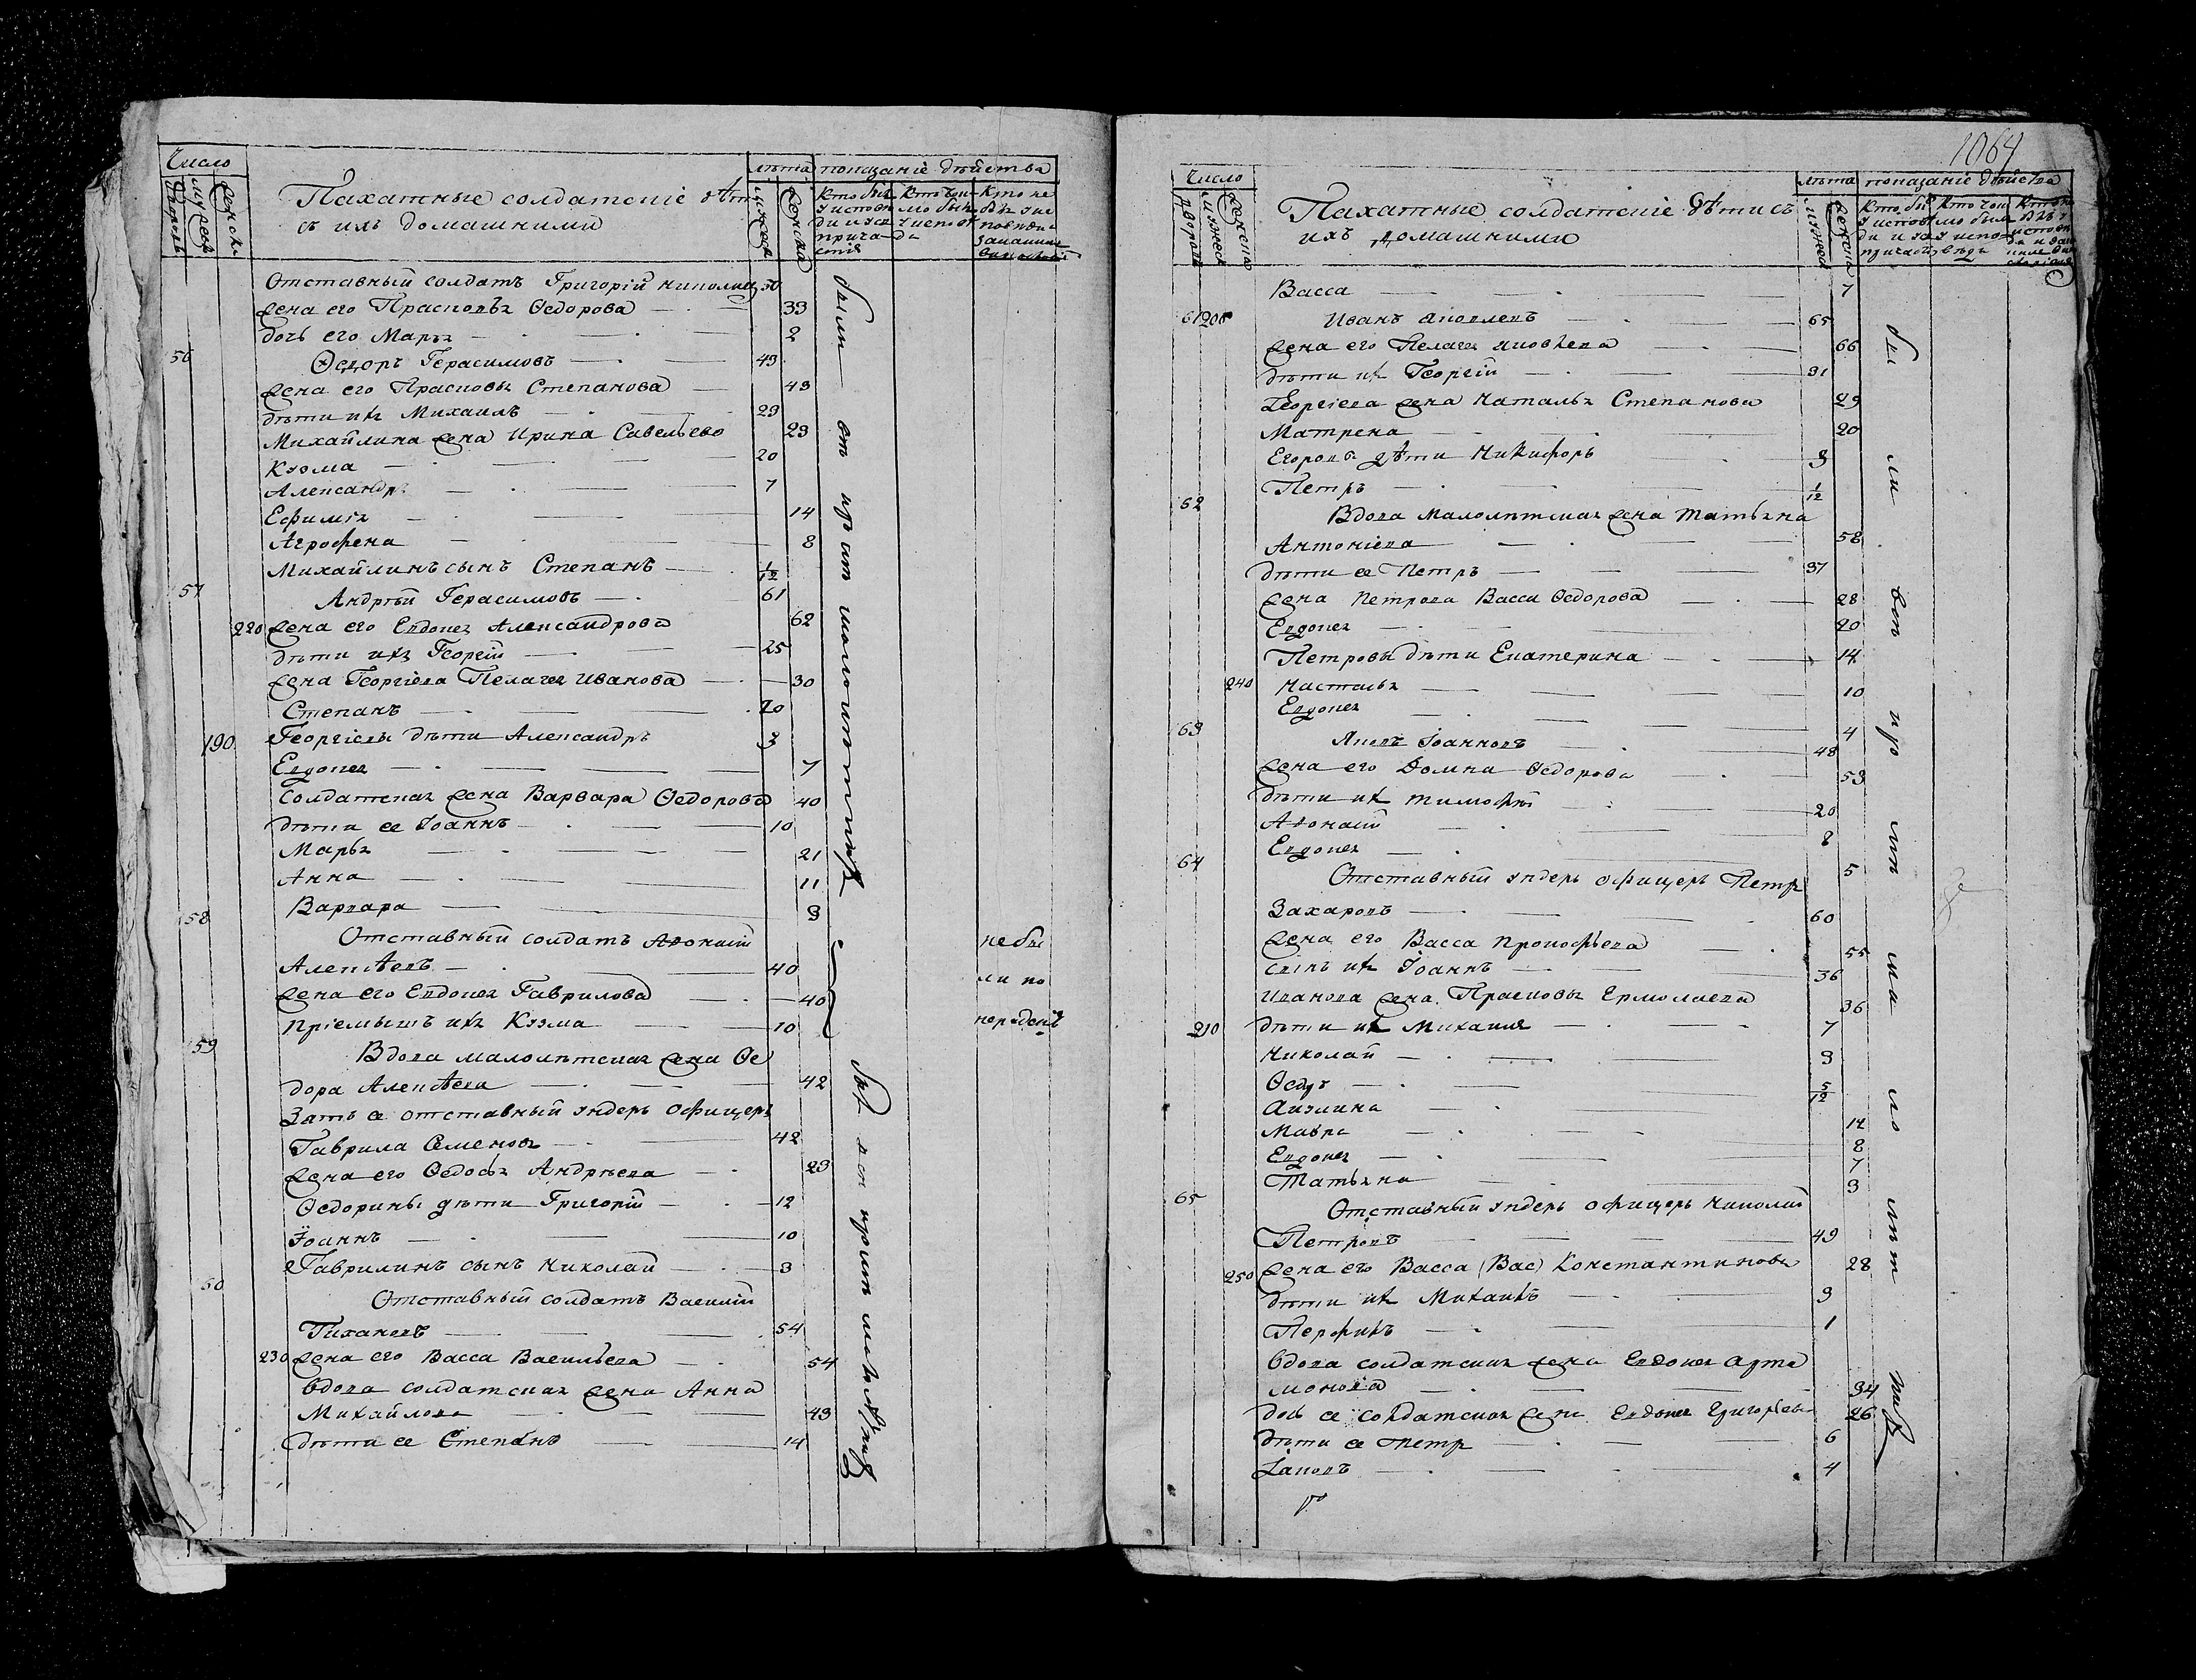 Число
лѣта показаніе дѣйства
дворовъ
мужеск
женска
Пахатные солдатские дѣт
съ ихъ домашними
мужеск
женска
кто был
у исповѣ
ди и св
прича
стія
кто токм
мо был
у исповѣ
ди
кто не
был у ис
повѣди
Отставный солдатъ Григорій Николаев 50
жена его Прасковья Ѳедорова 33
дочь его Марья 2
56
Ѳедоръ Герасимовъ 49
жена его Прасковья Степанова 49
дѣти ихъ Михаилъ 29
Михайлина жена Ирина Савельева 29
Козма 20
Александръ 7
Ефимія 14
Агрофена 8
Михайлинъ сынъ Степанъ 1/12
57
Андрѣй Герасимовъ 61
220 жена его Евдокея Александрова 62
дѣти ихъ Георгій 25
жена Георгіева Пелагея Иванова 30
Степанъ 20
190 Георгіевы дѣти Александръ 3
Евдокея 7
Солдатская жена Варвара Ѳедорова 40
дѣти ее Іоаннъ 10
Марья 21
Анна 11
Варвара 9
58
Отставный солдатъ Афонасій
Алексѣевъ 40
жена его Евдокея Гаврилова 40
пріемышъ ихъ Козма 10
не бы
ли по
нерадені
59
Вдова малолѣтская жена Ѳе
дора Алексѣева 42
Зять ее отставный ундеръ офицеръ
Гаврила Семеновъ 42
жена его Ѳедосья Андрѣева 23
Ѳедорины дѣти Григорій 12
Іоаннъ 10
Гаврилинъ сынъ Николай 3
60
Отставный солдатъ Василій
Тихановъ 54
230 жена его Васса Васильева 54
вдова солдатская жена Анна
Михайлова 49
дѣти ее Степанъ 14
были
1064
Число
лѣта показаніе дѣйства
дворовъ
мужеск
женска
Пахатные солдатскіе дѣти съ
ихъ домашними
мужеск
женска
Васса 7
61 200
Иванъ Яковлевъ 65
жена его Пелагея Яковлева 66
дѣти их Георгій 31
Георгіева жена Наталья Степанова 29
Матрена 20
Егоровы дѣти Никифоръ 3
Петръ 1/12
62
Вдова малолѣтская жена Татьяна
Антоніева 58
дѣти ее Петръ 37
жена Петрова Васса Ѳедорова 28
Евдокея 20
Петровы дѣти Екатерина 14
240 Настасья 10
Евдокея 4
63
Яковъ Іоанновъ 48
жена его Домна Ѳедорова 53
дѣти их Тимофѣй 20
Афонасій 8
Евдокея 5
64
Отставный ундеръ офицеръ Петръ
Захаровъ 60
жена его Васса Прокофьева 55
сынъ их Іоаннъ 36
Иванова жена Прасковья Ермолаева 36
210 дѣти их Михаила 7
Николай 3
Ѳедръ 5/12
Акулина 14
Мавра 8
Евдокея 7
Татьяна 3
65
Отставный ундеръ офицеръ Николай
Петровъ 49
250 жена его Васса (Вас) Константинова 28
дѣти их Михаилъ 3
Перфилъ 1
вдова солдатская жена Евдокея Арта
монова 34
дочь ее солдатская жена Евдокея Григорьева 26
дѣти ее Петръ 6
Іаковъ 4